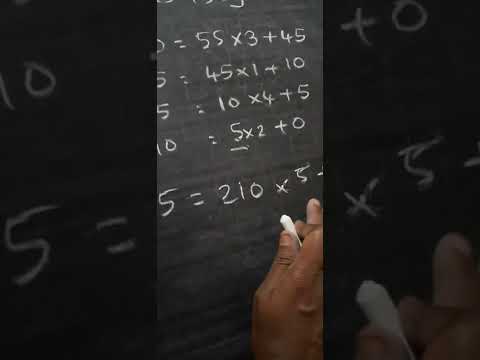 0 = 55 x 3 + 45
5 = 45 x 1 + 10
5 = 10 x 4 + 5
10 = 5 x 2 + 0
5 = 210 x 5